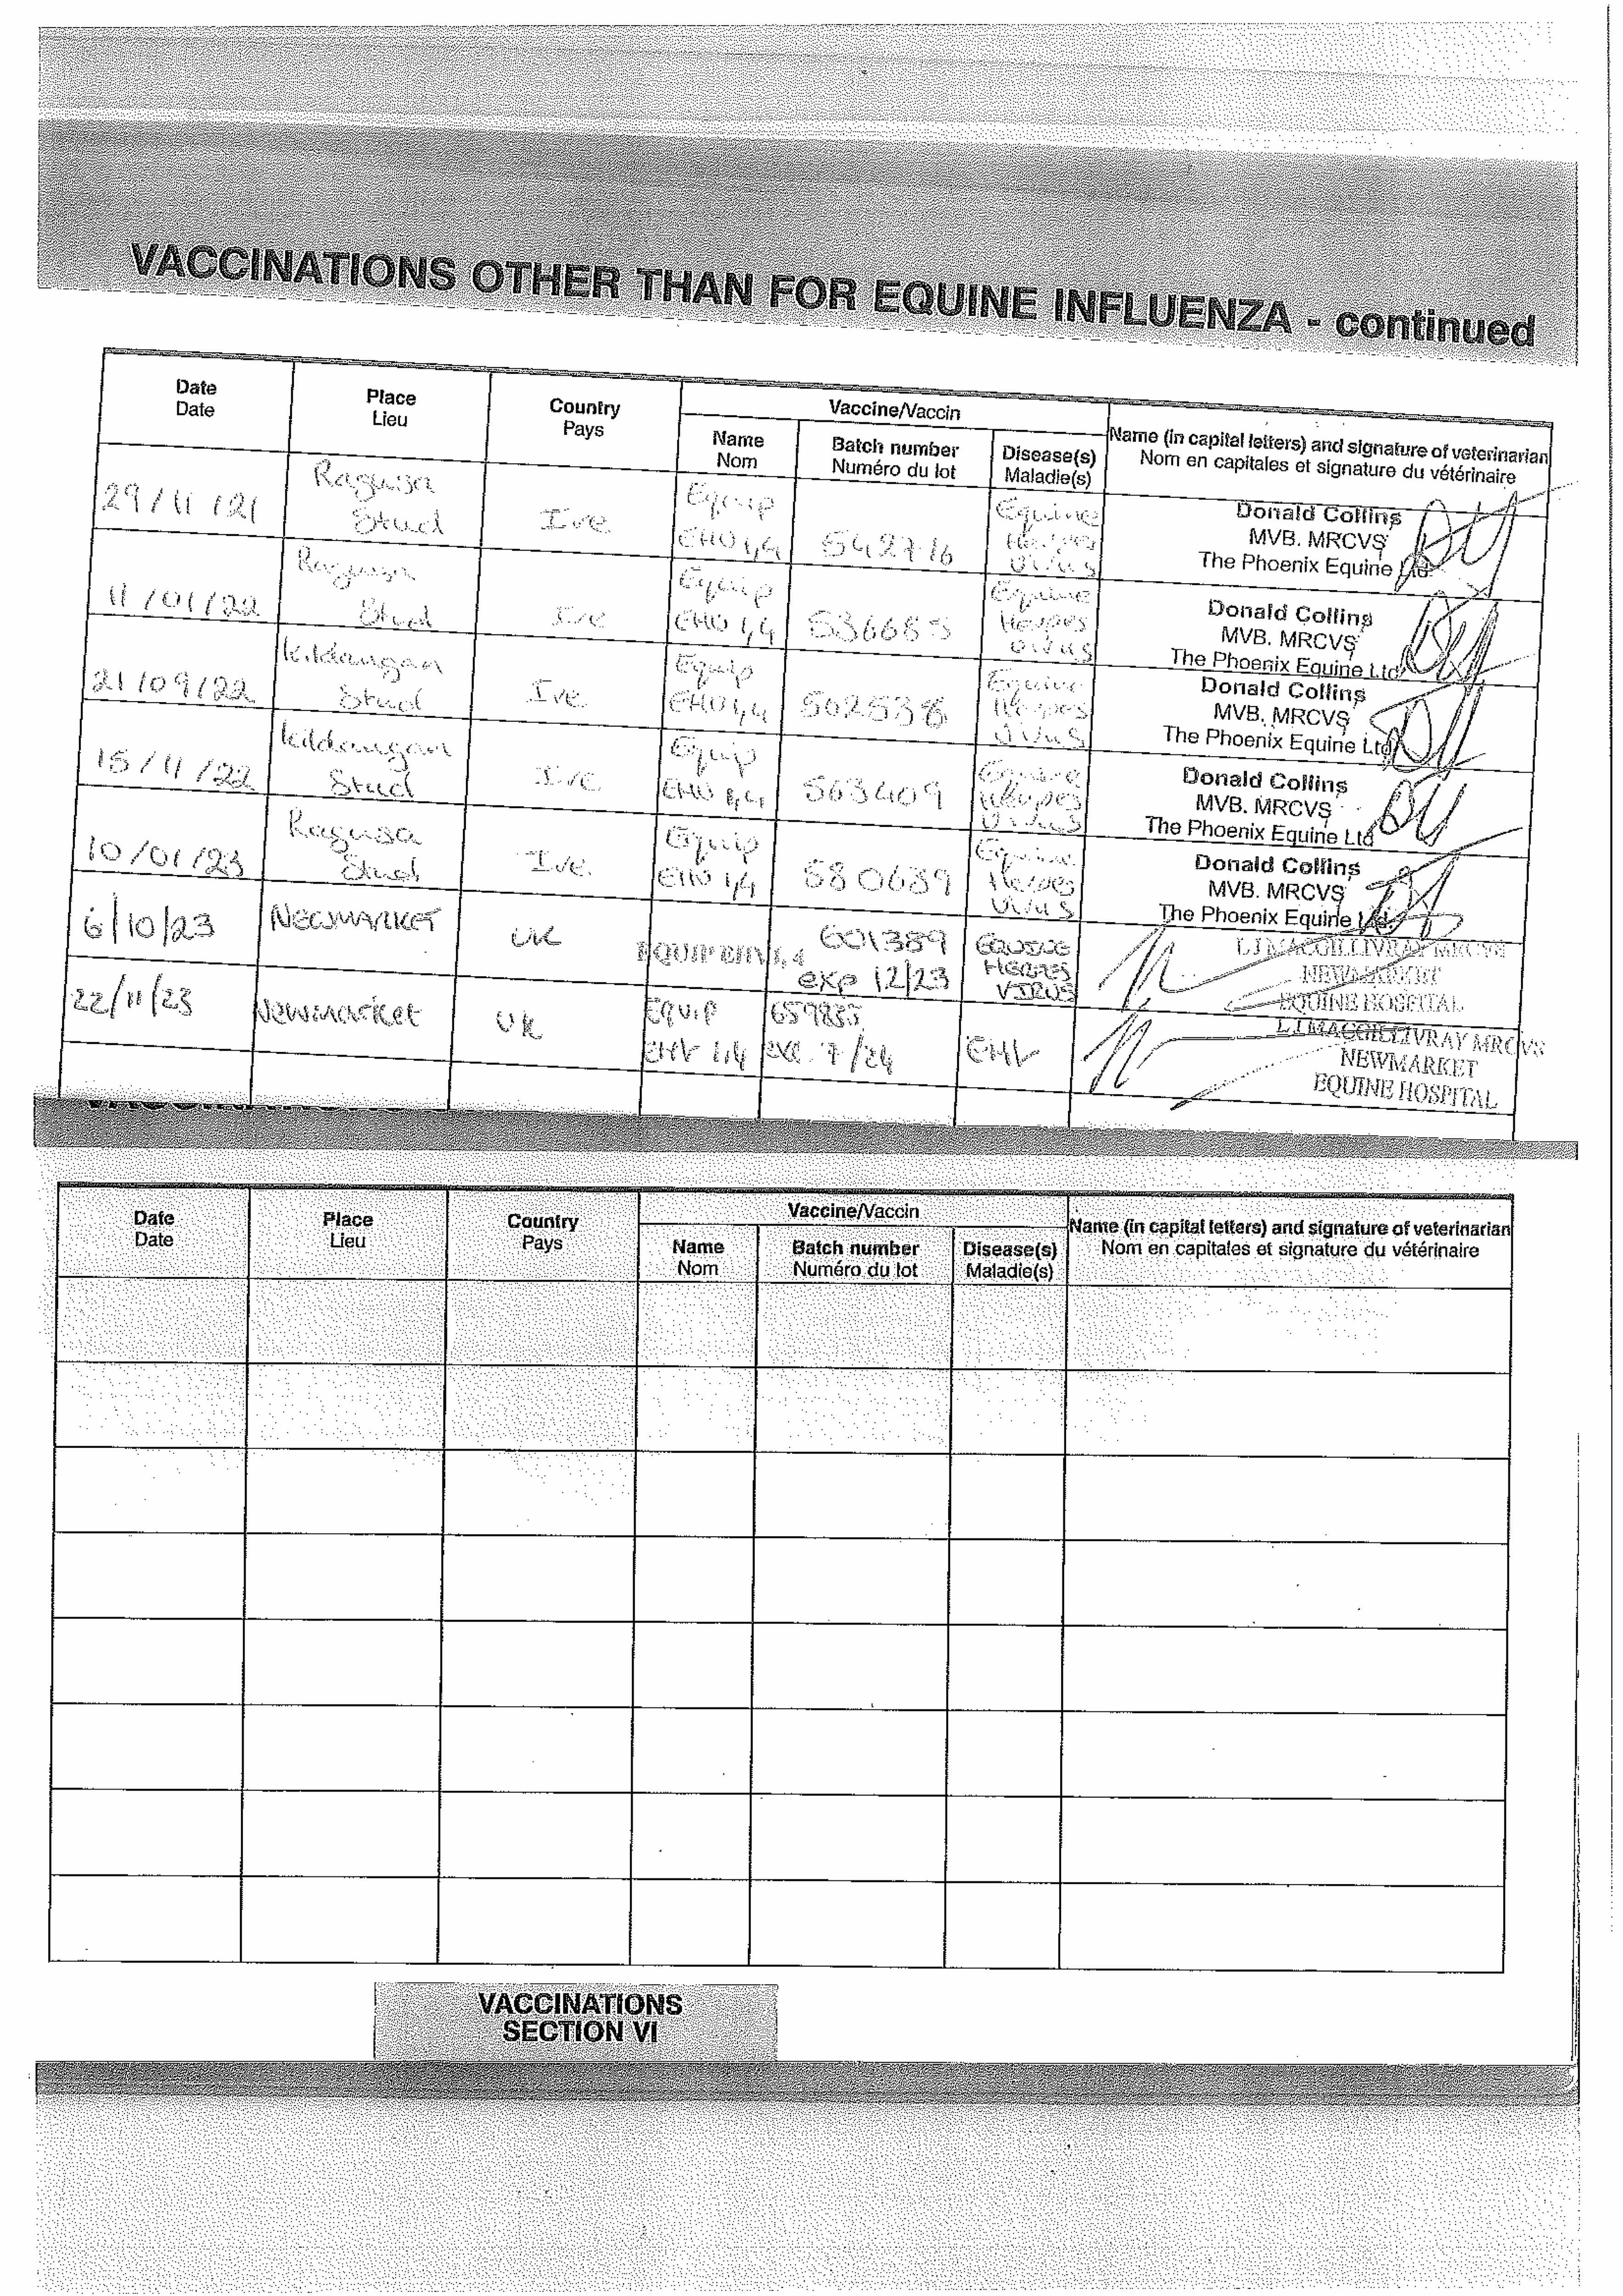 VACCINATIONS OTHER THAN FOR EQUINE INFLUENZA - continued
Date
Date
Place
Lieu
Country
Pays
Vaccine/Vaccin
Name
Nom
Batch number
Numéro du lot
Disease(s)
Maladie(s)
Name (in capital letters) and signature of veterinarian
Nom en capitales et signature du vétérinaire
29/11/21
Ragusa
Stud
Ire
Equip
EHV 1,4
542716
Equine
Herpes
Virus
Donald Collins
MVB. MRCVS
The Phoenix Equine Ltd.
11/01/22
Ragusa
Stud
Ire
Equip
EHV 1,4
Equine
Herpes
Virus
Donald Collins
MVB. MRCVS
The Phoenix Equine Ltd
21/09/22
Kildangan
Stud
Ire
Equip
EHV 1,4
502538
Equine
Herpes
Virus
Donald Collins
MVB. MRCVS
The Phoenix Equine Ltd
15/11/22
Kildangan
Stud
Ire
Equip
EHV 1,4
563409
Equine
Herpes
Virus
Donald Collins
MVB. MRCVS
The Phoenix Equine Ltd
10/01/23
Ragusa
Stud
Ire.
Equip
EHV 1,4
580639
Equine
Herpes
Virus
Donald Collins
MVB. MRCVS
The Phoenix Equine Ltd.
6/10/23
NEWMARKET
UK
EQUIP EHV 1,4
601389
exp 12/23
EQUINE
HERPES
VIRUS
L J MACGILLIVRAY MRCVS
NEWMARKET
EQUINE HOSPITAL
22/11/23
Newmarket
UK
EQUIP
EHV 1,4
659835
7/24
EHV
L J MACGILLIVRAY MRCVS
NEWMARKET
EQUINE HOSPITAL
Date
Date
Place
Lieu
Country
Pays
Vaccine/Vaccin
Name
Nom
Batch number
Numéro du lot
Disease(s)
Maladie(s)
Name (in capital letters) and signature of veterinarian
Nom en capitales et signature du vétérinaire
VACCINATIONS
SECTION VI